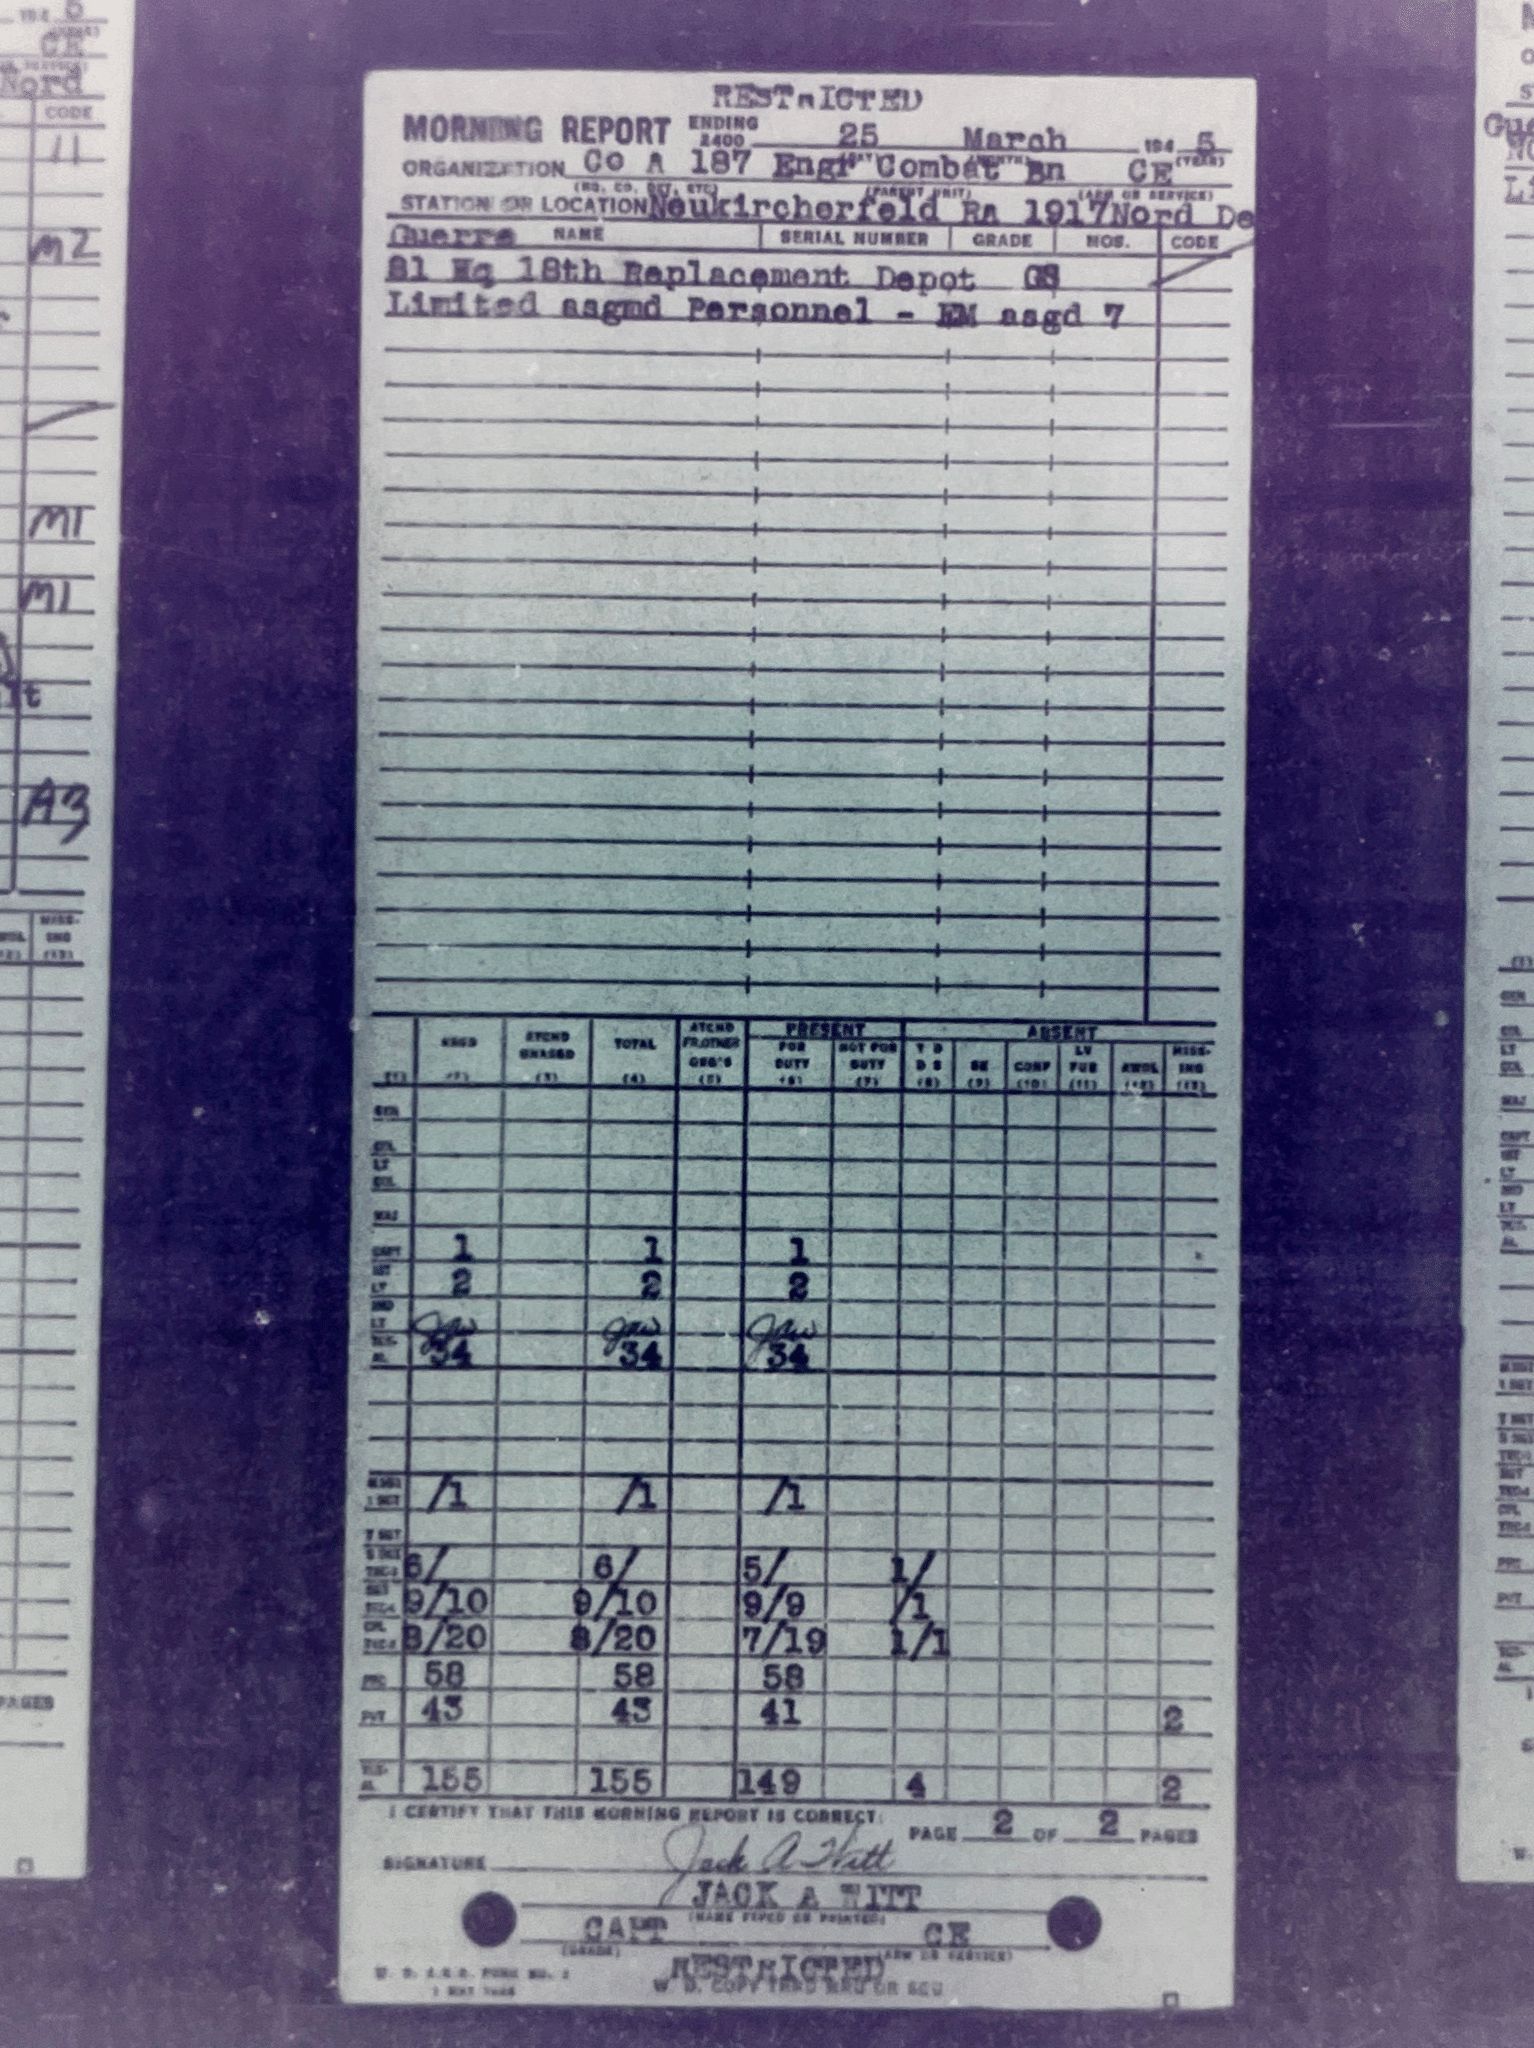 194 5
CE
Nord
CODE
11
M2
M1
M1
A3
MISS-
ING
(13)
PAGES
RESTRICTED
MORNING REPORT ENDING 2400 25 March 194 5
ORGANIZATION Co A 187 Engr Combat Bn CE
(HQ. CO. DET. ETC) (PARENT UNIT) (ARM OR SERVICE)
STATION OR LOCATION Neukircherfeld RA 1917 Nord De
Guerre NAME SERIAL NUMBER GRADE MOS. CODE
81 Hq 18th Replacement Depot GS
Limited asgmd Personnel - EM asgd 7
ASGD ATCHD UNASGD TOTAL ATCHD FR.OTHER ORG'S PRESENT FOR DUTY NOT FOR DUTY ABSENT T D D S SK CONF LV FUR AWOL MISS-ING
(1) (2) (3) (4) (5) (6) (7) (8) (9) (10) (11) (12) (13)
GEN
COL
LT COL
MAJ
CAPT 1 1 1
1ST LT 2 2 2
2ND LT
TOT-AL 34 34 34
JAW JAW JAW
M SGT 1 SGT /1 /1 /1
T SGT
S SGT TEC-3 6/ 6/ 5/ 1/
SGT TEC-4 9/10 9/10 9/9 /1
CPL TEC-5 8/20 8/20 7/19 1/1
PFC 58 58 58
PVT 43 43 41 2
TOT-AL 155 155 149 4 2
I CERTIFY THAT THIS MORNING REPORT IS CORRECT:
PAGE 2 OF 2 PAGES
SIGNATURE Jack A Witt
JACK A WITT
(NAME TYPED OR PRINTED)
CAPT CE
(GRADE) (ARM OR SERVICE)
RESTRICTED
W. D. A.G.O. FORM NO. 1
W. D. COPY THRU MRU OR SCU